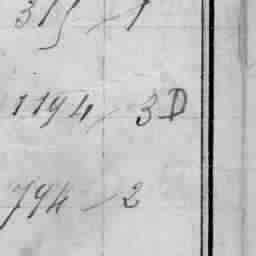 315 - 1
1194 - 3D
794 - 2